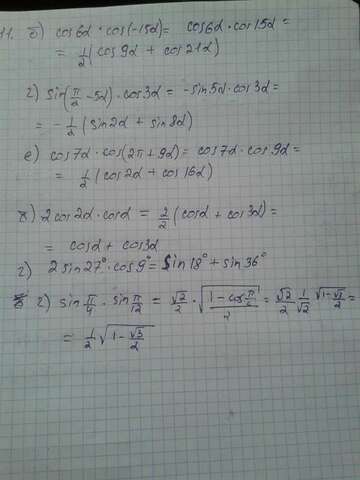 11. б) cos6α · cos(-15α) = cos6α · cos15α =
= 1/2 (cos9α + cos21α)
г) sin(π/2 - 5α) · cos3α = - sin5α · cos3α =
= - 1/2 (sin2α + sin8α)
е) cos7α · cos(2π + 9α) = cos7α · cos9α =
= 1/2 (cos2α + cos16α)
2cos2α · cosα = 2/2 (cosα + cos3α) =
= cosα + cos3α
г) 2 sin27° · cos9° = sin18° + sin36°
г) sin π/4 · sin π/12 = √2/2 · √((1 - cos π/6)/2) = √2/2 · 1/√2 √(1 - √3/2) =
= 1/2 √(1 - √3/2)